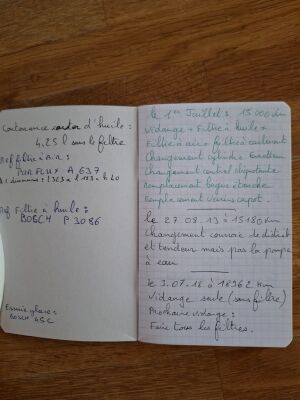 Contenance carter d'huile :
4,25 l sans le filtre
Ref filtre à air :
PURFLUX A 637
Ref Filtre à huile :
BOSCH P 3086
Essuie glace :
BOSCH 45C
le 1er Juillet : 15 000 km
Vidange + Filtre à huile +
Filtre à air + filtre à carburant
Changement cylindre
Changement contact
Remplacement bague étanche
Remplacement verrou capot.
le 27 08 13 à 15180 km
Changement courroie de distrib
et tendeur mais pas la pompe
à eau
le 3.07.18 à 18962 km
Vidange seule (sans filtre)
Prochaine vidange :
Faire tous les filtres.